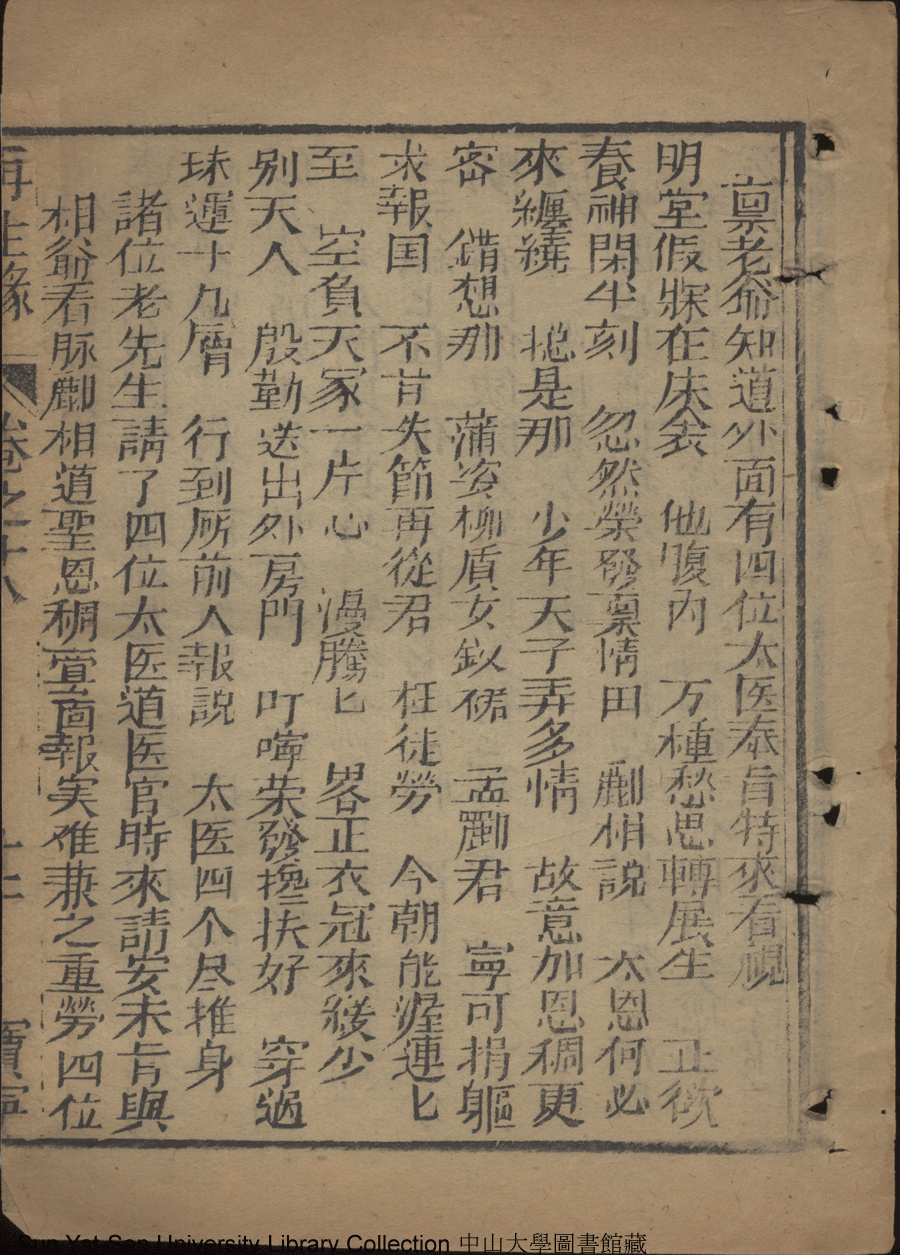 稟老爺知道外面有四位太医奉旨特來看視
明堂假寐在床衾　他腹內　万種愁思轉展生　正欲
養神閑半刻　忽然榮發稟情田　酈相說　太恩何必
來纏繞　搃是那　少年天子弄多情　故意加恩稠更
密　錯想那　蒲姿柳盾女釵裙　孟酈君　寧可捐軀
求報国　不肯失節再從君　枉徒勞　今朝能渥連匕
至　空負天家一片心　漫騰匕　畧正衣冠來緩少
别天人　殷勤送出外房門　叮嚀荣發攙扶好　穿過
珠運十九層　行到厛前人報說　太医四个尽推身
諸位老先生請了四位太医道医官時來請安未肯與
相爺看脉酈相道聖恩稠　　報実难兼之重勞四位
再生緣　卷之十八　十二　寶寧
Sun Yat-Sen University Library Collection 中山大學圖書館藏